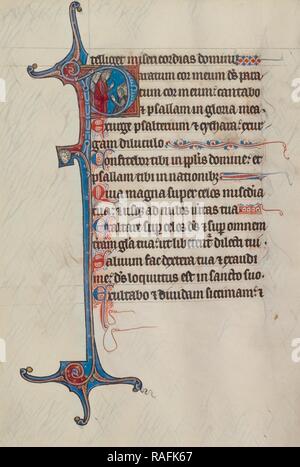 telliget misericordias domini
Paratum cor meum ds para
tum cor meum: cantabo
& psallam in gloria mea
Exurge psalterium & cythara: exur
gam diluculo
Confitebor tibi in pplis domine: et
psallam tibi in nationib;
Quia magna super celos misedia
tua: & usq; ad nubes ueritas tua
Exaltare sup celos ds & sup omnem
tram gla tua: ut liberent dilecti tui.
Saluum fac dextera tua & exaudi
me: ds loquutus est in sancto suo.
Exultabo & diuidam sicimam: &
alamy
Image ID: RAFK67
www.alamy.com